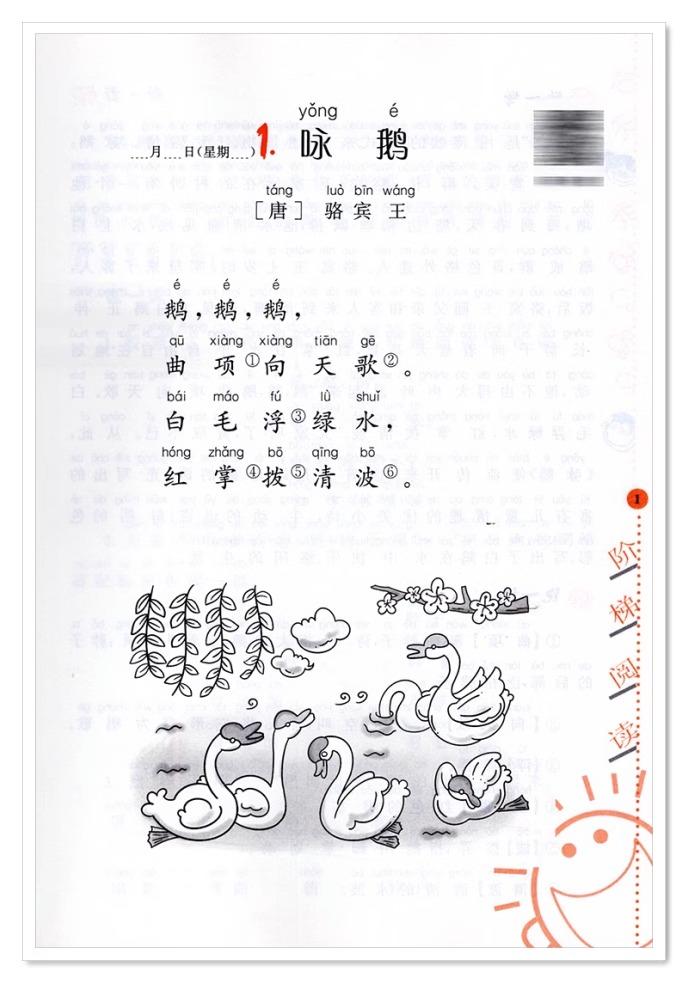 yǒng é
____月____日(星期____) 1. 咏 鹅
táng luò bīn wáng
[唐] 骆 宾 王
é é é
鹅，鹅，鹅，
qū xiàng xiàng tiān gē
曲 项①向 天 歌②。
bái máo fú lǜ shuǐ
白 毛 浮③绿 水，
hóng zhǎng bō qīng bō
红 掌④拨⑤清 波⑥。
1
阶梯阅读